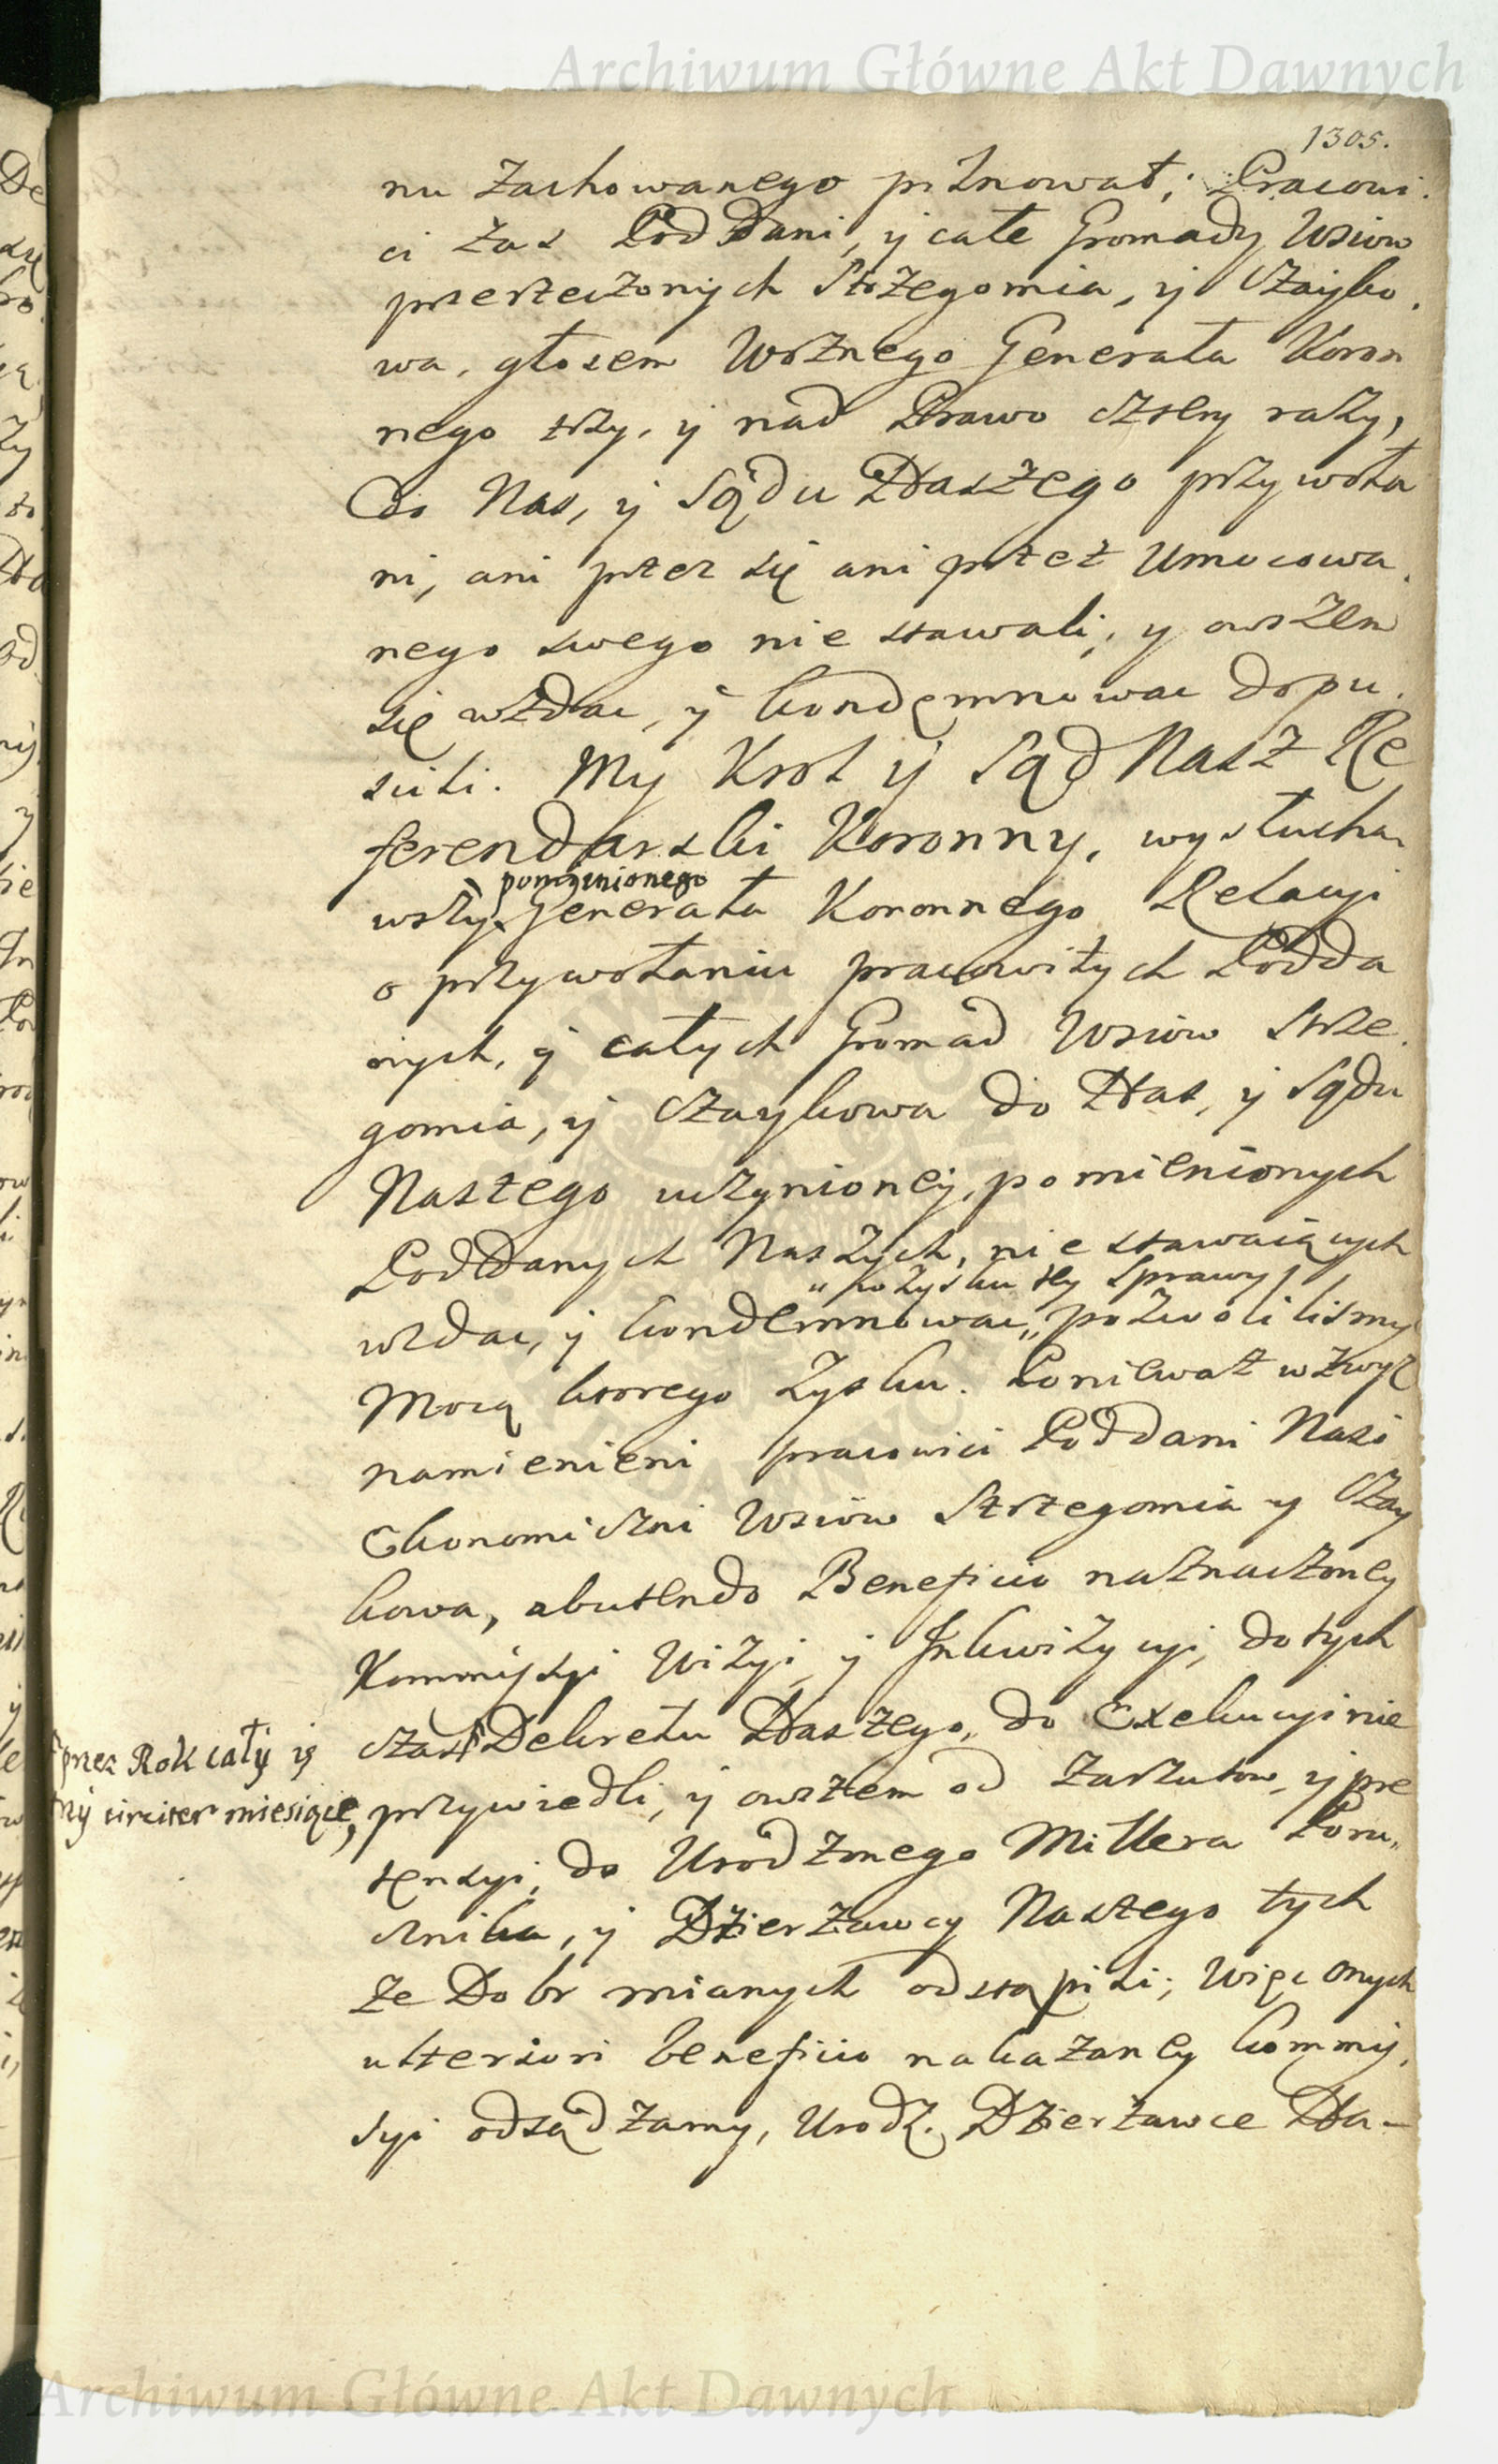 Archiwum Główne Akt Dawnych
1305.
nu zachowanego pilnował; Pracowi-
ci zas Poddani, y całe Gromady Wsiow
przerzeczonych Strzegomia, y Czayko-
wa, głosem Woznego Generała Koron
nego trzy, y nad Prawo cztery razy,
Do Nas, y Sądu Naszego przywoła
ni, ani przez się ani przez Umocowa-
nego swego nie stawali, y owszem
się wzdac, y kondemnowac dopu-
scili. My Krol y Sąd Nasz Re
ferendarski Koronny, wysłucha-
wszy pomienionego Generała Koronnego Relacyi
o przywołaniu pracowitych Podda
nych, y całych Gromad Wsiow Strze-
gomia, y Czaykowa do Nas, y Sądu
Naszego uczynioney, pomienionych
Poddanych Naszych, nie stawaiących
„w zysku tey Sprawy
wzdac, y kondemnowac „ pozwolilismy
Mocą ktorego zysku. Poniewaz wzwyz
namienieni pracowici Poddani Nasi
Ekonomiczni Wsiow Strzegomia y Czay
kowa, abutendo Beneficio naznaczoney
Kommissyi Wizyi, y Inkwizycyi, dotych
czas Dekretu Naszego, do Exekucyi nie
przez Rok cały y
trzy circiter miesiące,
przywiedli, y owszem od zarzutow, y pre
tensyi, do Urodzonego Millera Poru„
cznika, y Dzierzawcy Naszego tych
ze Dobr mianych odstąpili; Więc onych
ulteriori beneficio nakazaney kommis-
syi odsądzamy, Urodz. Dzierzawce Na-
Archiwum Główne Akt Dawnych